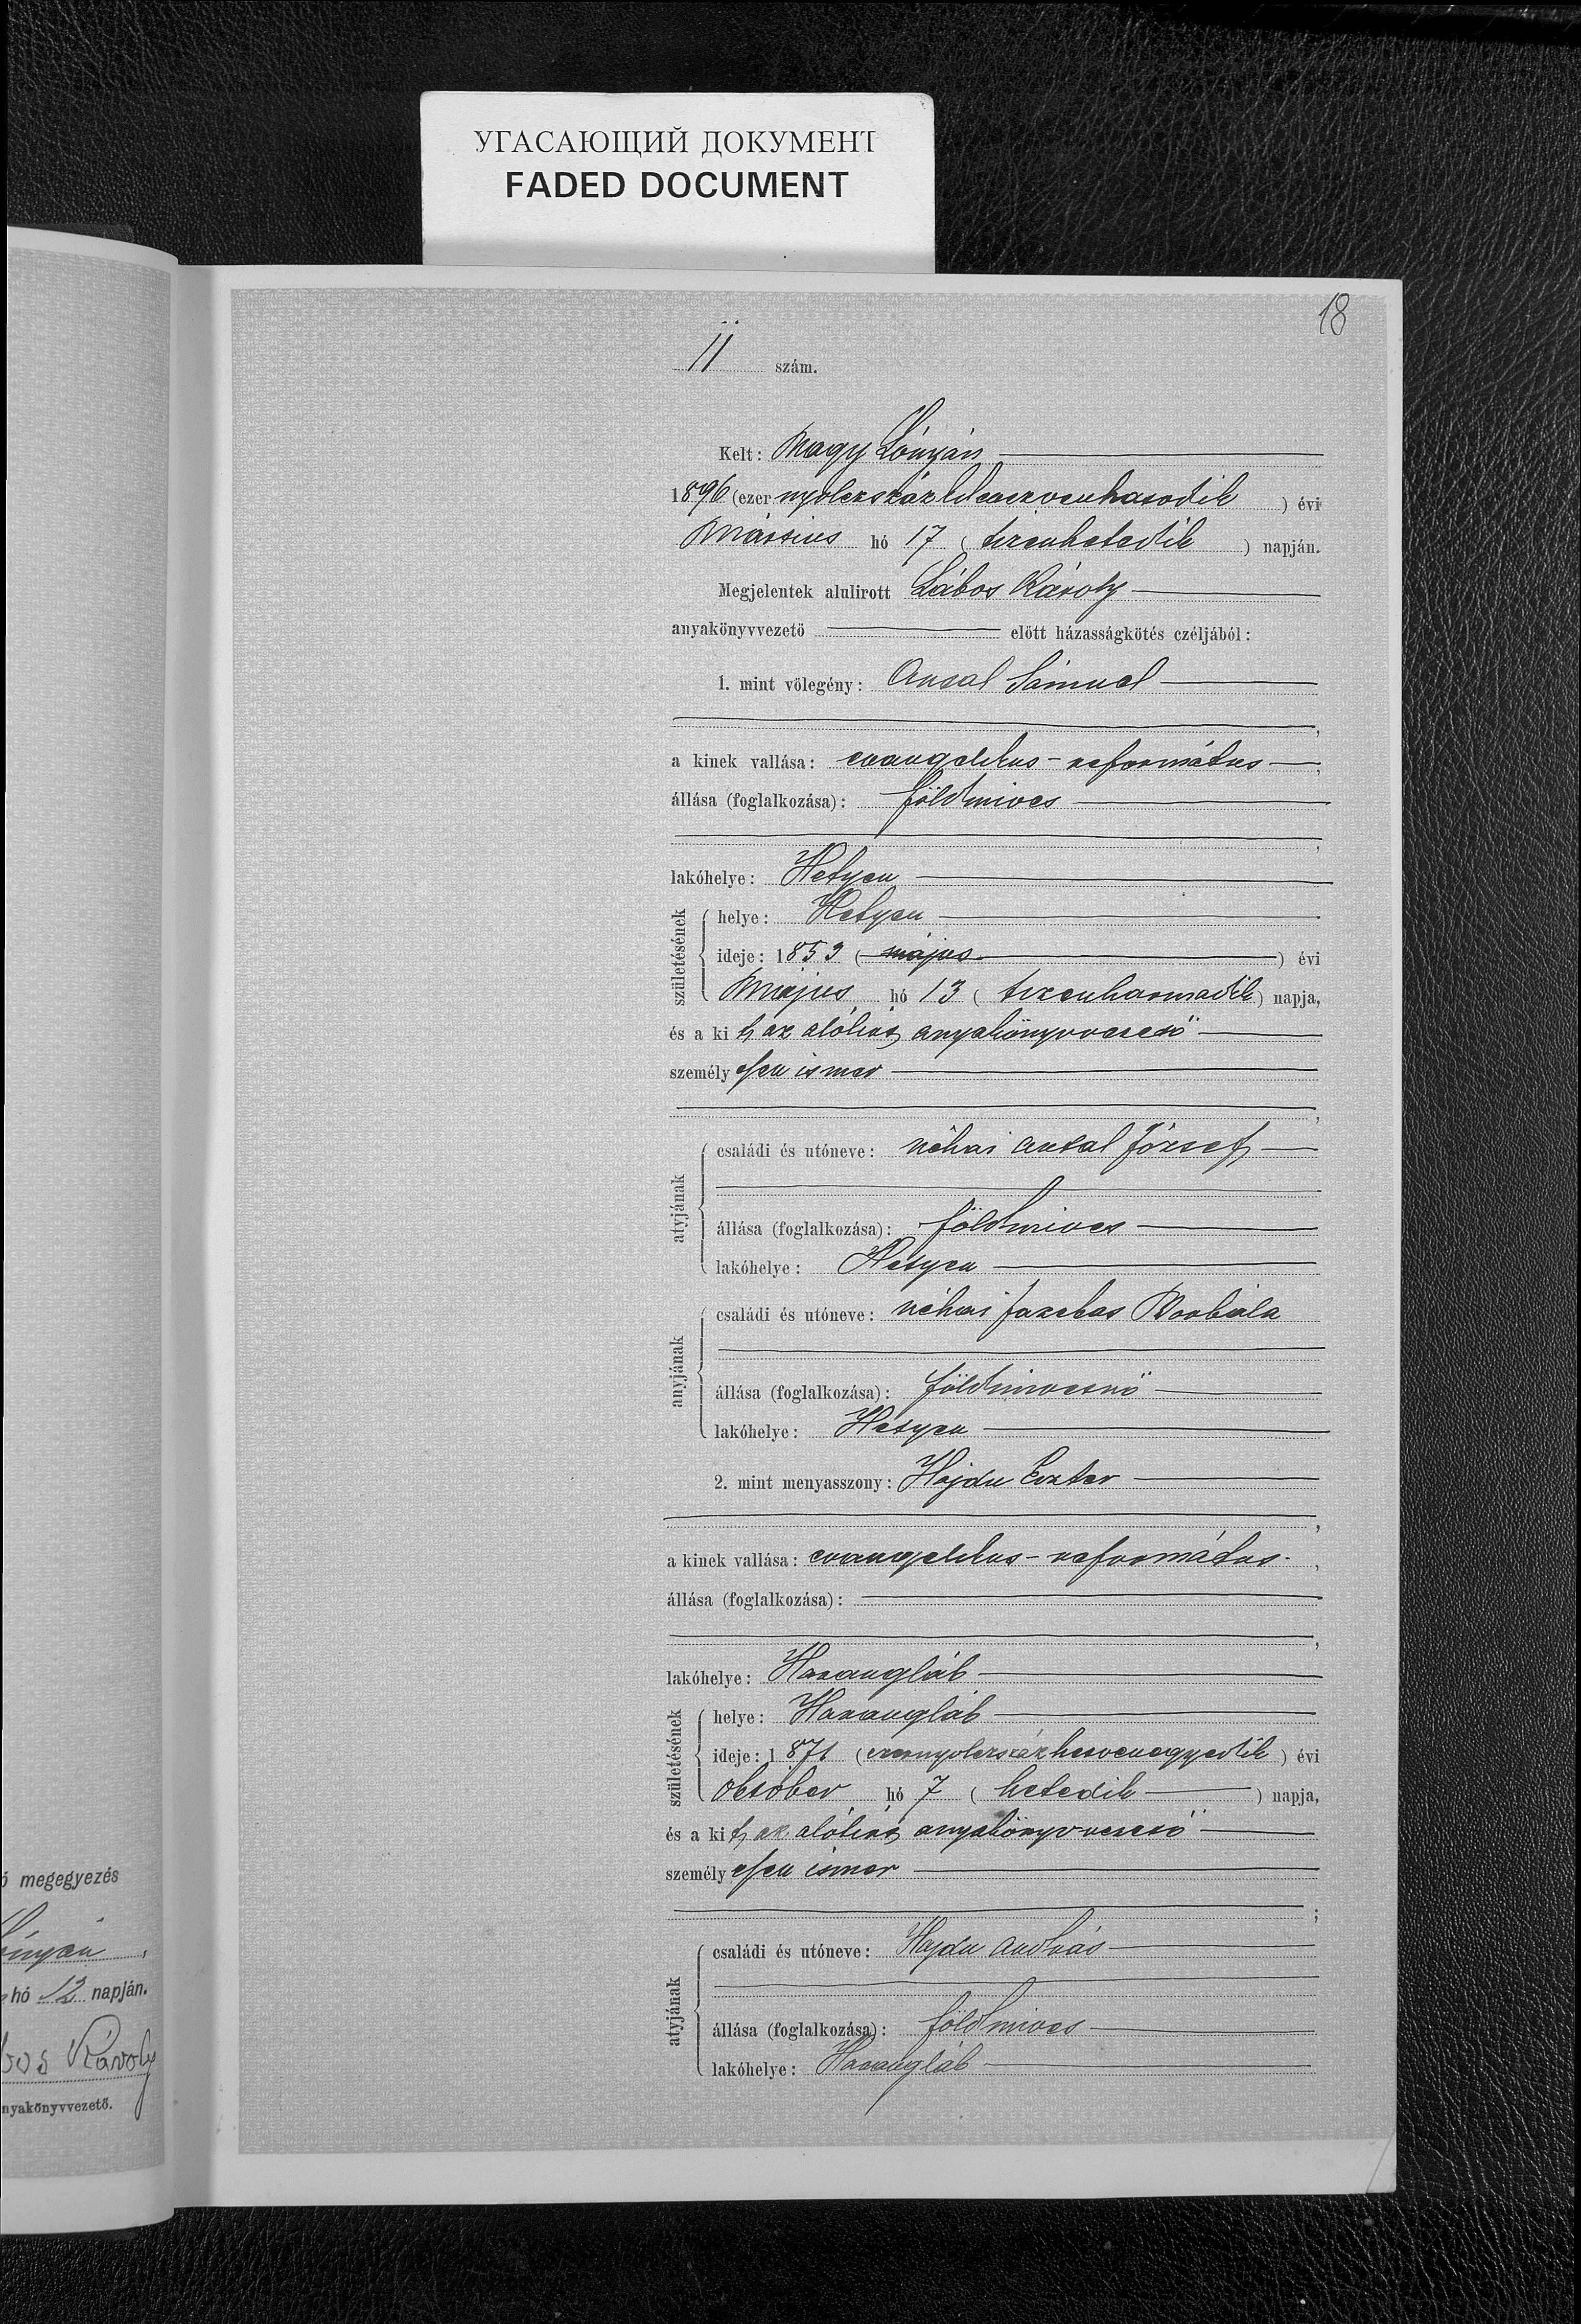 УГАСАЮЩИЙ ДОКУМЕНТ
FADED DOCUMENT
18
11 szám.
Kelt: Nagy Lónyán
1896 (ezer nyolczszázkilenczvenhatodik) évi
Március hó 17 (tizenhetedik) napján.
Megjelentek alulirott Lábos Károly
anyakönyvvezető előtt házasságkötés czéljából:
1. mint vőlegény: Antal Sámuel
,
a kinek vallása: evangelikus-református,
állása (foglalkozása): földmives
,
lakóhelye: Hetyen
születésének
helye: Hetyen
ideje: 1853 (május) évi
Május hó 13 (tizenharmadik) napja,
és a kit az alólirt anyakönyvvezető
személyesen ismer
,
atyjának
családi és utóneve: néhai Antal József
állása (foglalkozása): földmives
lakóhelye: Hetyen
anyjának
családi és utóneve: néhai Fazekas Borbála
állása (foglalkozása): földmivesnő
lakóhelye: Hetyen
2. mint menyasszony: Hajdu Eszter
,
a kinek vallása: evangelikus-református,
állása (foglalkozása):
,
lakóhelye: Harangláb
születésének
helye: Harangláb
ideje: 1871 (ezernyolczszázhetvenegyedik) évi
október hó 7 (hetedik) napja,
és a kit az alólirt anyakönyvvezető
személyesen ismer
;
atyjának
családi és utóneve: Hajdu András
állása (foglalkozása): földmives
lakóhelye: Harangláb
ó megegyezés
ónyán,
hó 12 napján.
bos Károly
nyakönyvvezető.